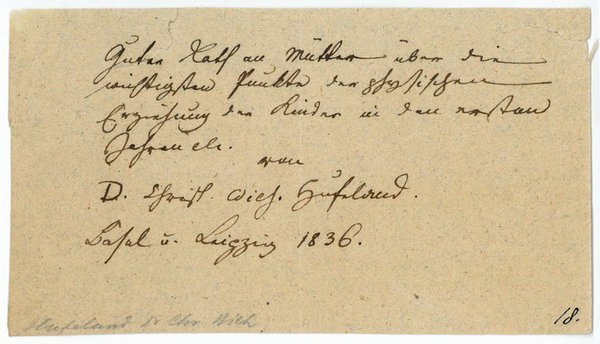 Guter Rath an Mütter über die
wichtigsten Punkte der physischen
Erziehung der Kinder in den ersten
Jahren etc.
von
D. Christ. Wilh. Hufeland.
Basel u. Leipzig 1836.
Hufeland D. Chr. Wilh
18.